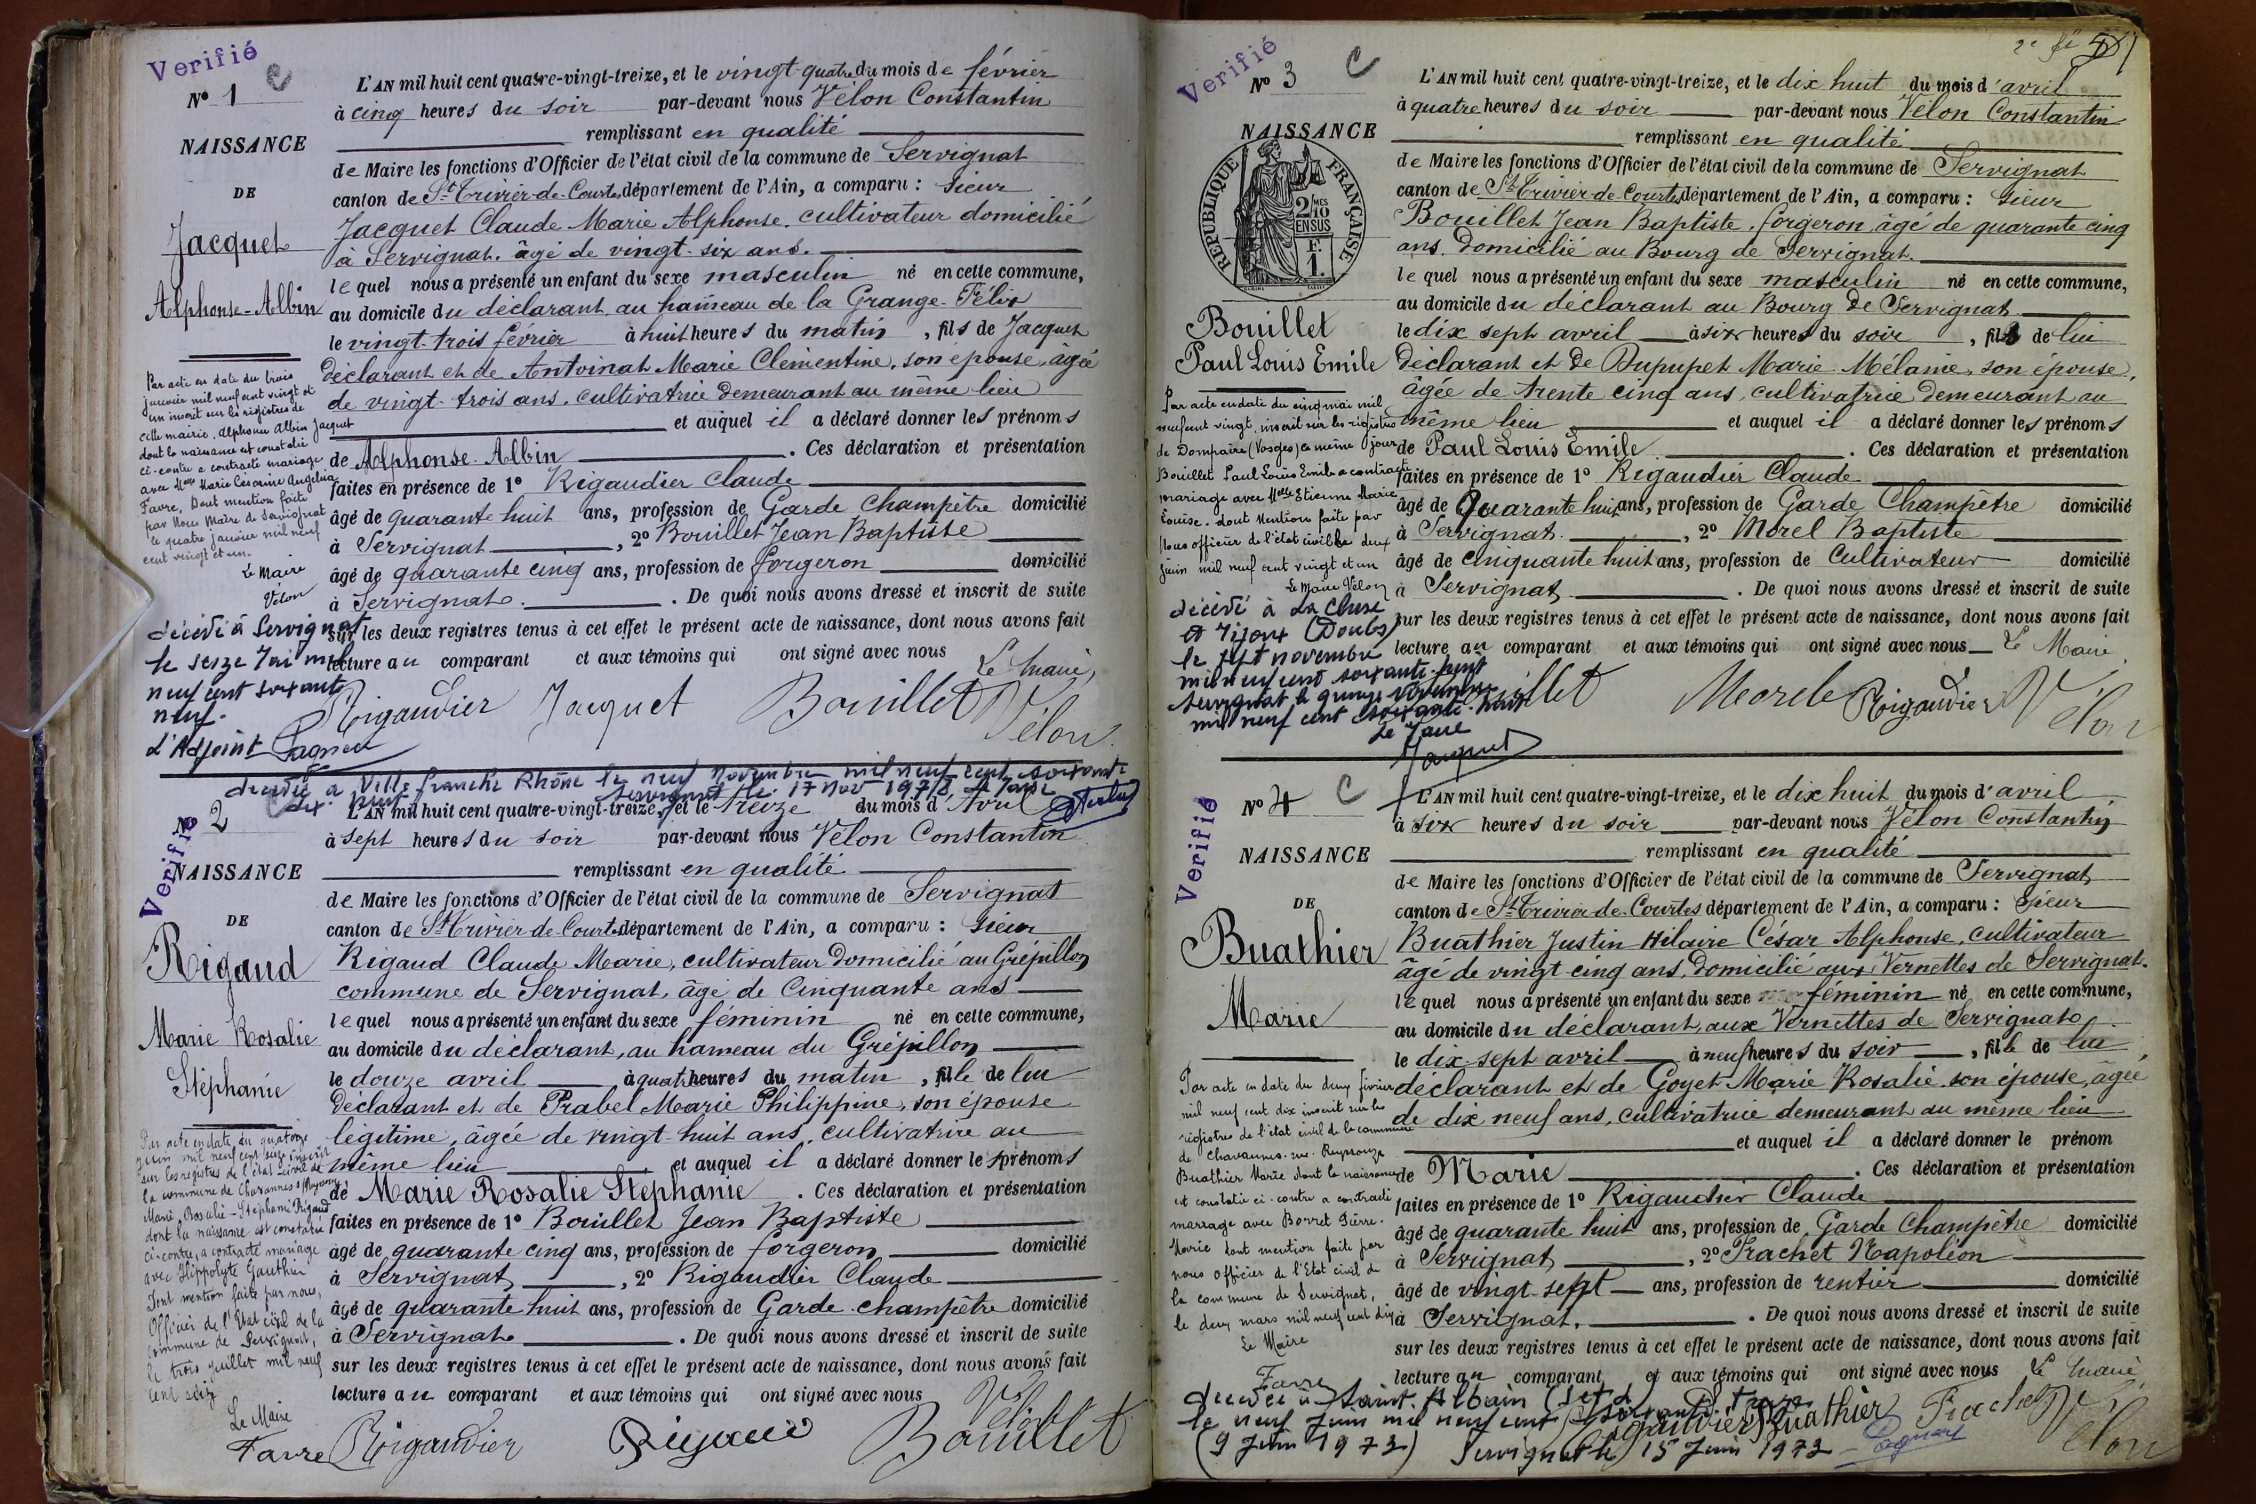 Verifié
N° 1 C
NAISSANCE
DE
Jacquet
Alphonse-Albin
Par acte en date du trois
janvier mil neuf cent vingt et
un inscrit sur les registres de
cette mairie, Alphonse Albin Jacquet
dont la naissance est constatée
ci-contre a contracté mariage
avec Melle Marie Césarine Angelina
Favre, Dont mention faite
par Nous Maire de Servignat
le quatre janvier mil neuf
cent vingt et un.
Le Maire
Velon
décédé à Servignat
le seize Mai mil
neuf cent soixante
neuf.
L'Adjoint
L'AN mil huit cent quatre-vingt-treize, et le vingt-quatre du mois de février
à cinq heures du soir par-devant nous Vélon Constantin
remplissant en qualité
de Maire les fonctions d'Officier de l'état civil de la commune de Servignat
canton de St-Trivier-de-Courtes, département de l'Ain, a comparu : sieur
Jacquet Claude Marie Alphonse, cultivateur domicilié
à Servignat, âgé de vingt-six ans.
lequel nous a présenté un enfant du sexe masculin né en cette commune,
au domicile du déclarant au hameau de la Grange-Félix
le vingt-trois février à huit heures du matin, fils de Jacquet
déclarant et de Antoinat Marie Clémentine, son épouse, âgée
de vingt-trois ans, cultivatrice demeurant au même lieu
et auquel il a déclaré donner les prénoms
de Alphonse-Albin. Ces déclaration et présentation
faites en présence de 1° Rigaudier Claude
âgé de quarante huit ans, profession de Garde Champêtre domicilié
à Servignat, 2° Bouillet Jean Baptiste
âgé de quarante cinq ans, profession de forgeron domicilié
à Servignat. De quoi nous avons dressé et inscrit de suite
sur les deux registres tenus à cet effet le présent acte de naissance, dont nous avons fait
lecture au comparant et aux témoins qui ont signé avec nous
Le Maire,
Rigaudier Jacquet Bouillet Vélon
décédée à Villefranche Rhône le neuf novembre mil neuf cent soixante
dix huit Servignat le 17 Nov 1978 Le Maire
Verifié
N° 2
NAISSANCE
DE
Rigaud
Marie Rosalie
Stéphanie
Par acte en date du quatorze
juin mil neuf cent seize inscrit
sur les registres de l'état civil de
la commune de Chavannes s/Reyssouze
Marie-Rosalie-Stéphanie Rigaud
dont la naissance est constatée
ci-contre, a contracté mariage
avec Hippolyte Gauthier
Dont mention faite par nous,
Officier de l'Etat civil de la
commune de Servignat,
le trois juillet mil neuf
cent seize
Le Maire
Favre
L'AN mil huit cent quatre-vingt-treize, et le treize du mois d'Avril
à sept heures du soir par-devant nous Vélon Constantin
remplissant en qualité
de Maire les fonctions d'Officier de l'état civil de la commune de Servignat
canton de St-Trivier-de-Courtes, département de l'Ain, a comparu : sieur
Rigaud Claude Marie, cultivateur domicilié au Grépillon
commune de Servignat, âgé de Cinquante ans
lequel nous a présenté un enfant du sexe féminin né en cette commune,
au domicile du déclarant, au hameau du Grépillon
le douze avril à quatre heures du matin, fille de lui
déclarant et de Prabel Marie Philippine, son épouse
légitime, âgée de vingt-huit ans, cultivatrice au
même lieu et auquel il a déclaré donner les prénoms
de Marie Rosalie Stéphanie. Ces déclaration et présentation
faites en présence de 1° Bouillet Jean Baptiste
âgé de quarante cinq ans, profession de forgeron domicilié
à Servignat, 2° Rigaudier Claude
âgé de quarante huit ans, profession de Garde-champêtre domicilié
à Servignat. De quoi nous avons dressé et inscrit de suite
sur les deux registres tenus à cet effet le présent acte de naissance, dont nous avons fait
lecture au comparant et aux témoins qui ont signé avec nous
Rigaudier Rigaud Bouillet Vélon
Verifié
N° 3 C
NAISSANCE
REPUBLIQUE FRANÇAISE
2/10 MES
EN SUS
F.
1.
Bouillet
Paul Louis Emile
Par acte en date du cinq mai mil
neuf cent vingt, inscrit sur les registres
de Dompaire (Vosges) ce même jour
Bouillet Paul Louis Emile a contracté
mariage avec Melle Etienne Marie
Louise. dont Mention faite par
Nous officier de l'état civil le deux
juin mil neuf cent vingt et un
Le Maire Vélon
décédé à La Cluse
et Mijoux (Doubs)
le sept novembre
mil neuf cent soixante huit
Servignat le quinze novembre
mil neuf cent soixante huit
Le Maire
Jacquet
L'AN mil huit cent quatre-vingt-treize, et le dix huit du mois d'avril
à quatre heures du soir par-devant nous Vélon Constantin
remplissant en qualité
de Maire les fonctions d'Officier de l'état civil de la commune de Servignat
canton de St-Trivier-de-Courtes, département de l'Ain, a comparu : sieur
Bouillet Jean Baptiste, forgeron, âgé de quarante cinq
ans, domicilié au Bourg de Servignat.
lequel nous a présenté un enfant du sexe masculin né en cette commune,
au domicile du déclarant au Bourg de Servignat
le dix sept avril à six heures du soir, fils de lui
déclarant et de Dupupet Marie Mélanie, son épouse,
âgée de trente cinq ans, cultivatrice, demeurant au
même lieu et auquel il a déclaré donner les prénoms
de Paul Louis Emile. Ces déclaration et présentation
faites en présence de 1° Rigaudier Claude
âgé de Quarante huit ans, profession de Garde Champêtre domicilié
à Servignat, 2° Morel Baptiste
âgé de cinquante huit ans, profession de Cultivateur domicilié
à Servignat. De quoi nous avons dressé et inscrit de suite
sur les deux registres tenus à cet effet le présent acte de naissance, dont nous avons fait
lecture au comparant et aux témoins qui ont signé avec nous Le Maire
Bouillet Morel Rigaudier Vélon
Verifié
N° 4 C
NAISSANCE
DE
Buathier
Marie
Par acte en date du deux février
mil neuf cent dix inscrit sur les
registres de l'état civil de la commune
de Chavannes-sur-Reyssouze
Buathier Marie dont la naissance
est constatée ci-contre a contracté
mariage avec Borret Pierre-
Marie dont mention faite par
nous Officier de l'Etat civil de
la commune de Servignat,
le deux mars mil neuf cent dix
Le Maire
Favre
L'AN mil huit cent quatre-vingt-treize, et le dix huit du mois d'avril
à six heures du soir par-devant nous Vélon Constantin
remplissant en qualité
de Maire les fonctions d'Officier de l'état civil de la commune de Servignat
canton de St-Trivier-de-Courtes département de l'Ain, a comparu : Sieur
Buathier Justin Hilaire César Alphonse, cultivateur
âgé de vingt-cinq ans, domicilié aux Vernettes de Servignat.
lequel nous a présenté un enfant du sexe féminin né en cette commune,
au domicile du déclarant, aux Vernettes de Servignat
le dix-sept avril à neuf heures du soir, fille de lui
déclarant et de Goyet Marie Rosalie son épouse, âgée
de dix neuf ans, cultivatrice demeurant au même lieu
et auquel il a déclaré donner le prénom
de Marie. Ces déclaration et présentation
faites en présence de 1° Rigaudier Claude
âgé de quarante huit ans, profession de Garde Champêtre domicilié
à Servignat, 2° Trachet Napoléon
âgé de vingt sept ans, profession de rentier domicilié
à Servignat. De quoi nous avons dressé et inscrit de suite
sur les deux registres tenus à cet effet le présent acte de naissance, dont nous avons fait
lecture au comparant et aux témoins qui ont signé avec nous Le Maire
Rigaudier Buathier Trachet Vélon
décédée à Saint-Albain (S et L)
le neuf Juin mil neuf cent soixante treize
(9 Juin 1973) Servignat le 15 Juin 1973